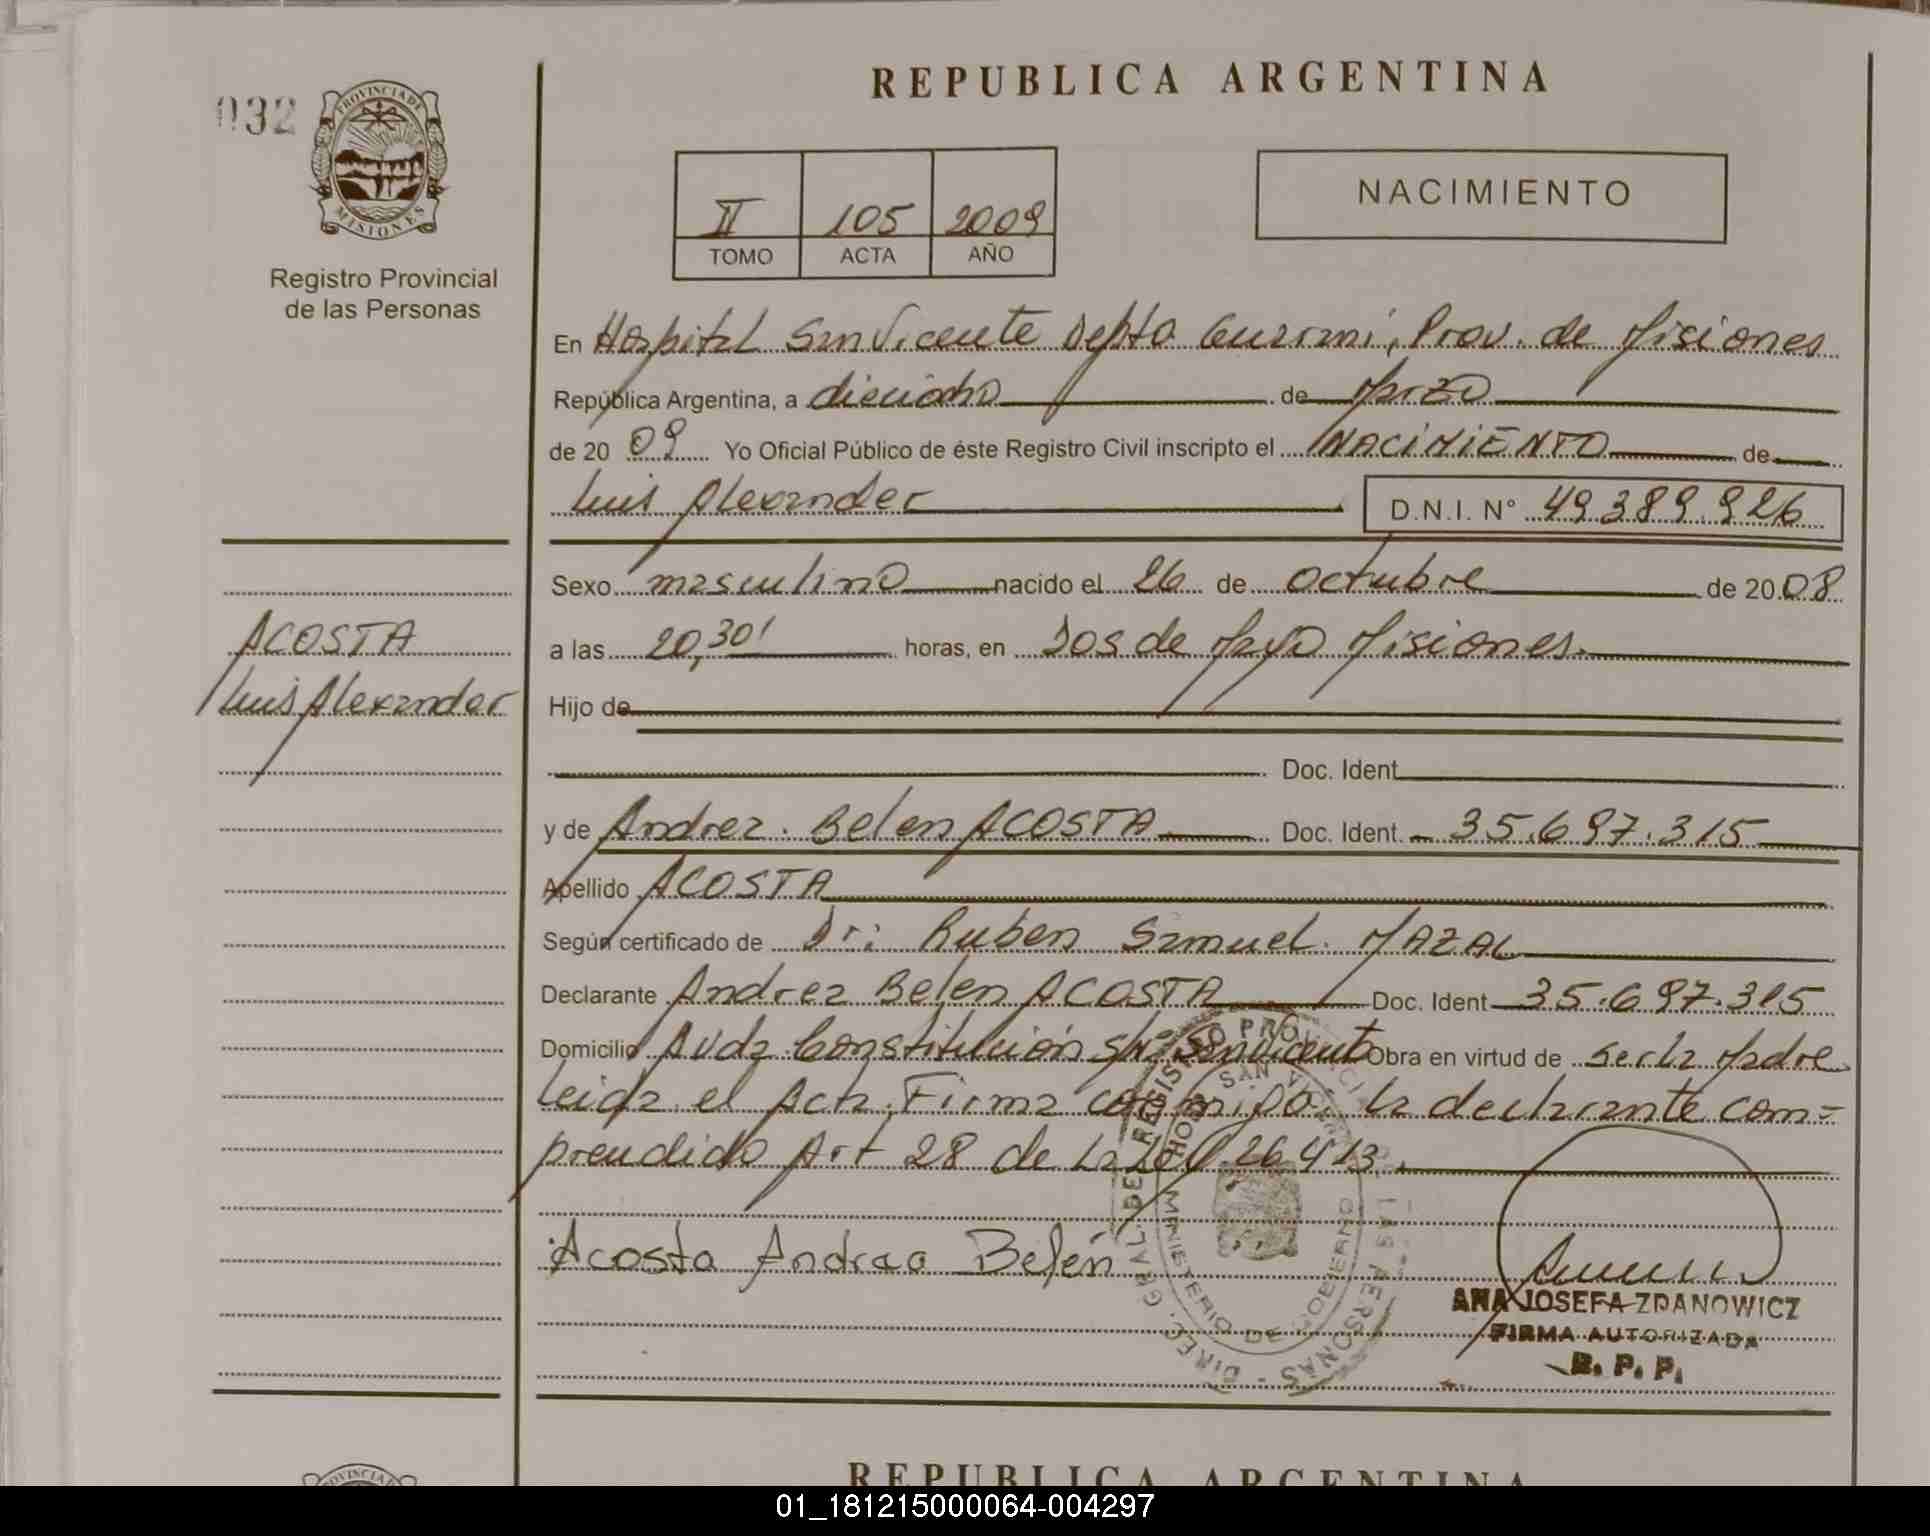 REPUBLICA ARGENTINA
032
PROVINCIA DE
MISIONES
Registro Provincial
de las Personas
II 105 2009
TOMO ACTA AÑO
NACIMIENTO
En Hospital San Vicente Depto Guarani, Prov. de Misiones
República Argentina, a dieciocho de Marzo
de 20 09 Yo Oficial Público de éste Registro Civil inscripto el NACIMIENTO de
Luis Alexander D.N.I. N° 49.389.926
Sexo masculino nacido el 26 de octubre de 20 08
a las 20,30' horas, en Dos de Mayo Misiones.
ACOSTA
Luis Alexander
Hijo de
Doc. Ident
y de Andrea Belen ACOSTA Doc. Ident. 35.697.315
Apellido ACOSTA
Según certificado de Dr: Ruben Samuel MAZAL
Declarante Andrea Belen ACOSTA Doc. Ident 35.697.315
Domicilio Avda Constitución s/n° San Vicente Obra en virtud de ser la Madre
Leida el Acta Firma conmigo la declarante com=
prendido Art 28 de la Ley 26413.
Acosta Andrea Belén
ANA JOSEFA ZDANOWICZ
FIRMA AUTORIZADA
R. P. P.
DIREC. GRAL. DE REGISTRO PROVINCIAL DE LAS PERSONAS
MINISTERIO DE GOBIERNO
SAN VICENTE
PROVINCIA
REPUBLICA ARGENTINA
01_181215000064-004297